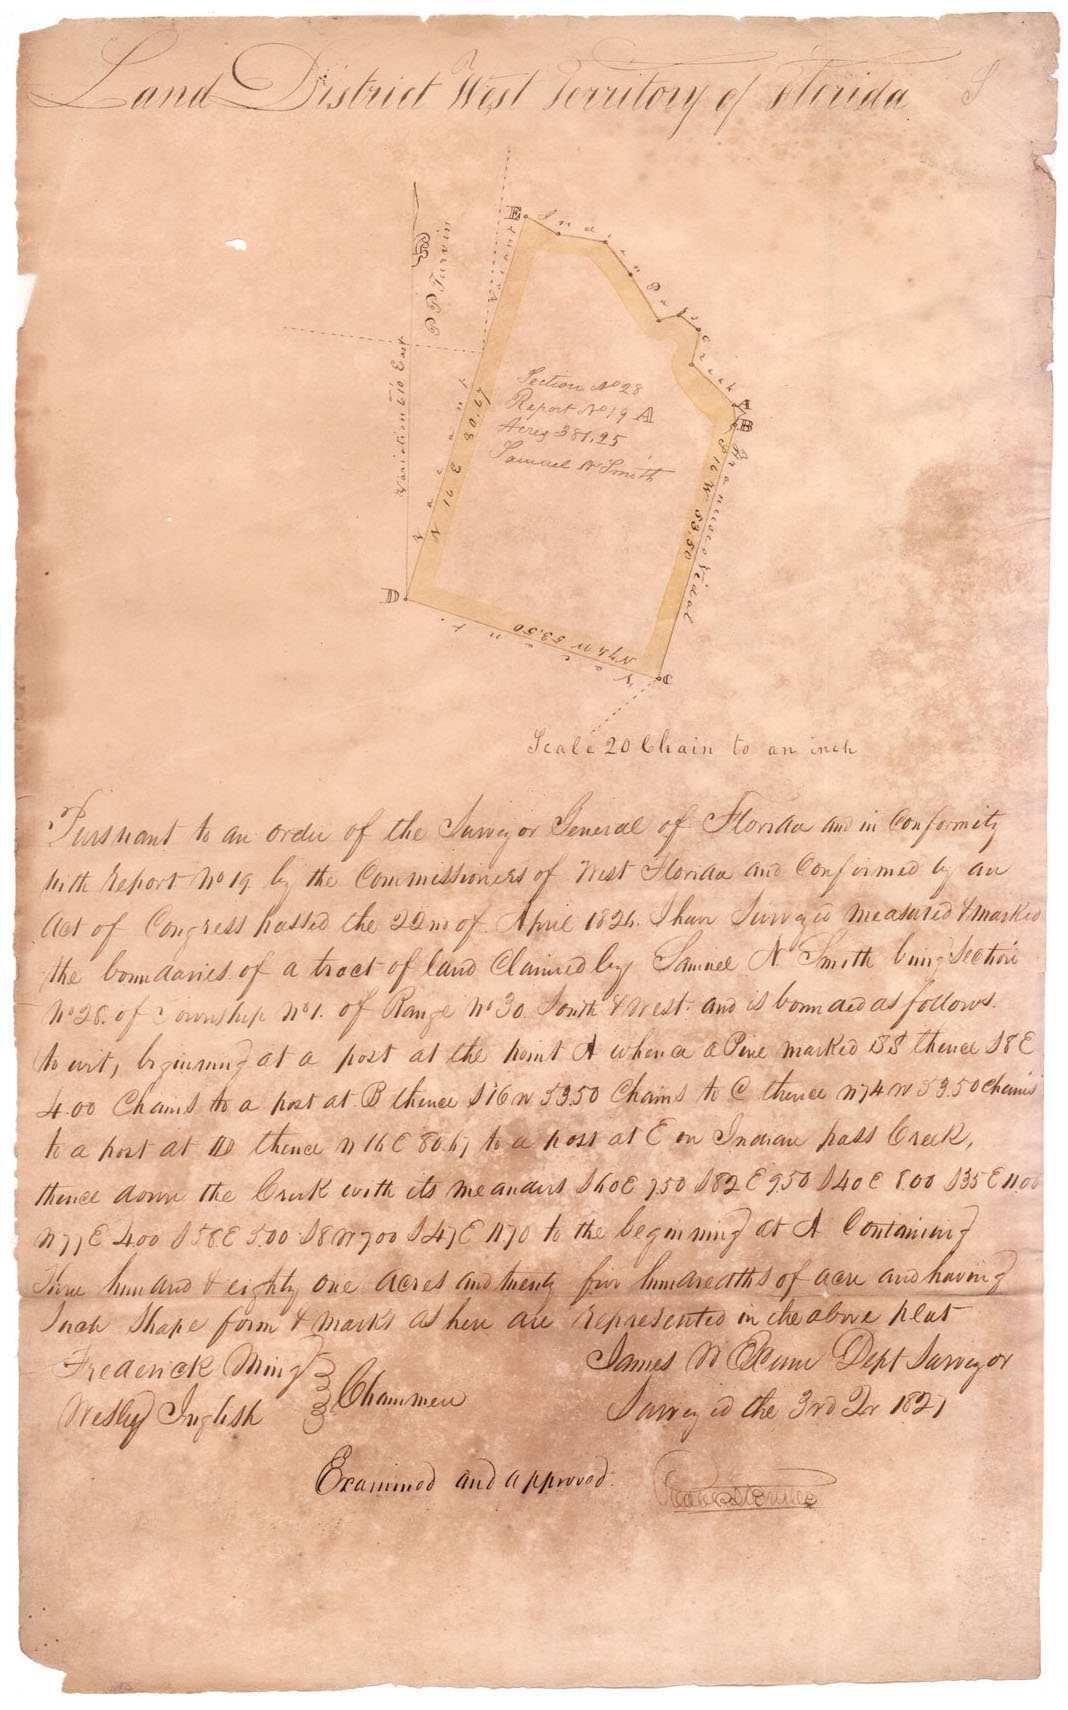 Land District West Territory of Florida
S
E
Indian Pass Creek
Vacant
P P Turvin
Variation 6°10 East
Section No 28
Report No 19 A
Acres 381.25
Samuel N Smith
A
B
N 16 E 80.67
Vacant
S 16 W 53.50
Francisco Vidal
D
N 74 W 53.50
Vacant
C
Scale 20 Chain to an inch
Pursuant to an order of the Surveyor General of Florida and in Conformity
with Report No 19 by the Commissioners of West Florida and Confirmed by an
Act of Congress passed the 22nd of April 1826. I have Surveyed measured & marked
the boundaries of a tract of land Claimed by Samuel N Smith being Section
No 28. of Township No 1. of Range No 30 South & West and is bounded as follows.
to wit, beginning at a post at the point A whence a Pine marked SS thence S8E
4.00 Chains to a post at B thence S16W 53.50 Chains to C thence N74W 53.50 Chains
to a post at D thence N16E 80.67 to a post at E on Indian pass Creek,
thence down the Creek with its meanders S60E 7.50 S82E 9.50 S40E 8.00 S35E 11.00
N77E 4.00 S58E 5.00 S8W 7.00 S47E 11.70 to the beginning at A Containing
Three hundred & eighty one acres and twenty five hundredths of acre and having
Such Shape form & marks as here are represented in the above plat
Frederick Ming
James W Exum Dept Surveyor
Chainmen
Wesley Inglish
Surveyed the 3rd Qr 1827
Examined and approved.